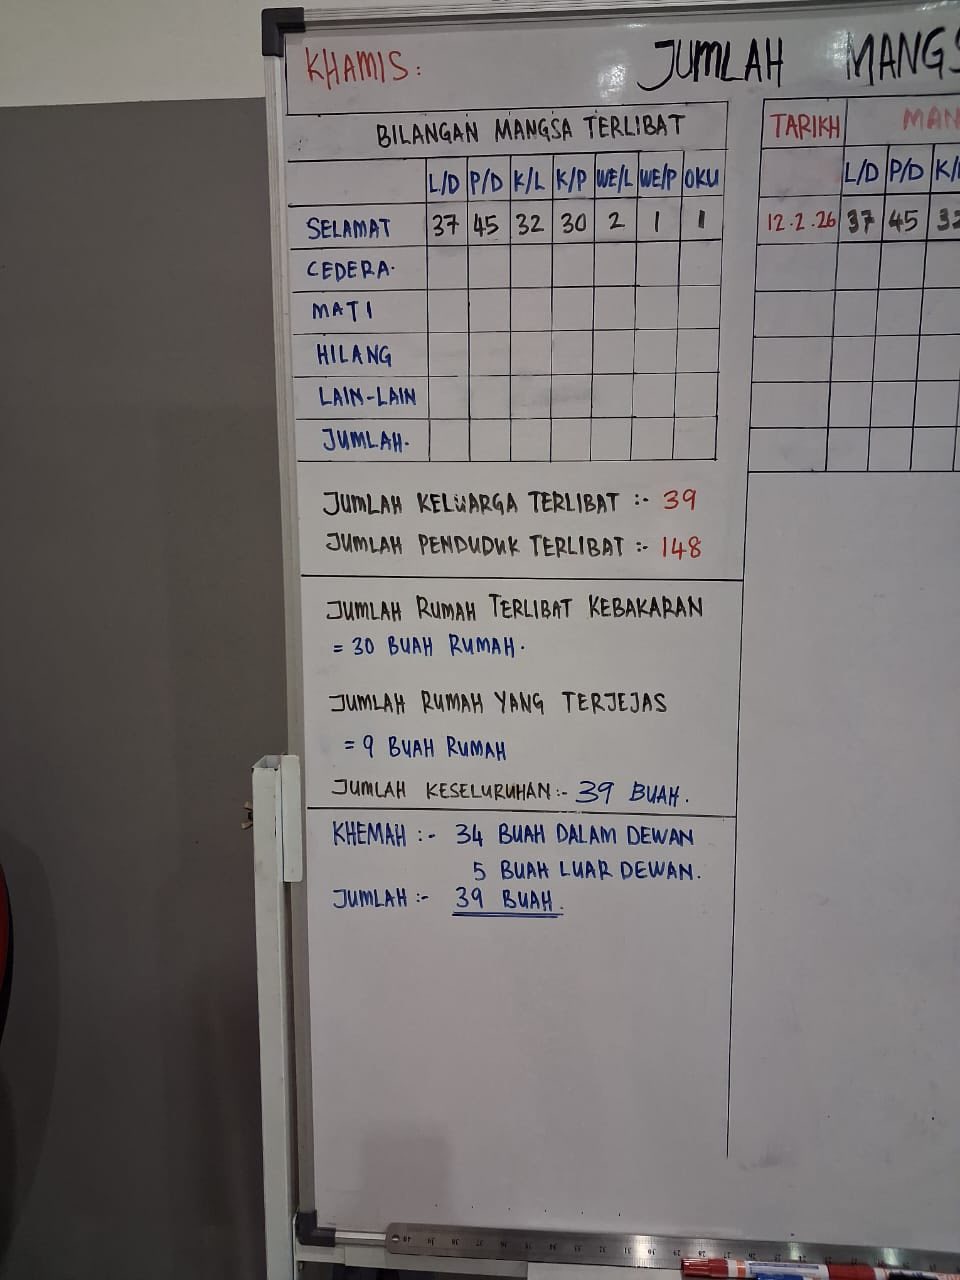 KHAMIS: JUMLAH MANGS
BILANGAN MANGSA TERLIBAT
L/D P/D K/L K/P WE/L WE/P OKU
SELAMAT 37 45 32 30 2 1 1
CEDERA.
MATI
HILANG
LAIN-LAIN
JUMLAH.
JUMLAH KELUARGA TERLIBAT :- 39
JUMLAH PENDUDUK TERLIBAT :- 148
JUMLAH RUMAH TERLIBAT KEBAKARAN
= 30 BUAH RUMAH.
JUMLAH RUMAH YANG TERJEJAS
= 9 BUAH RUMAH
JUMLAH KESELURUHAN :- 39 BUAH.
KHEMAH :- 34 BUAH DALAM DEWAN
5 BUAH LUAR DEWAN.
JUMLAH :- 39 BUAH.
TARIKH MAN
L/D P/D K/
12.2.26 37 45 32